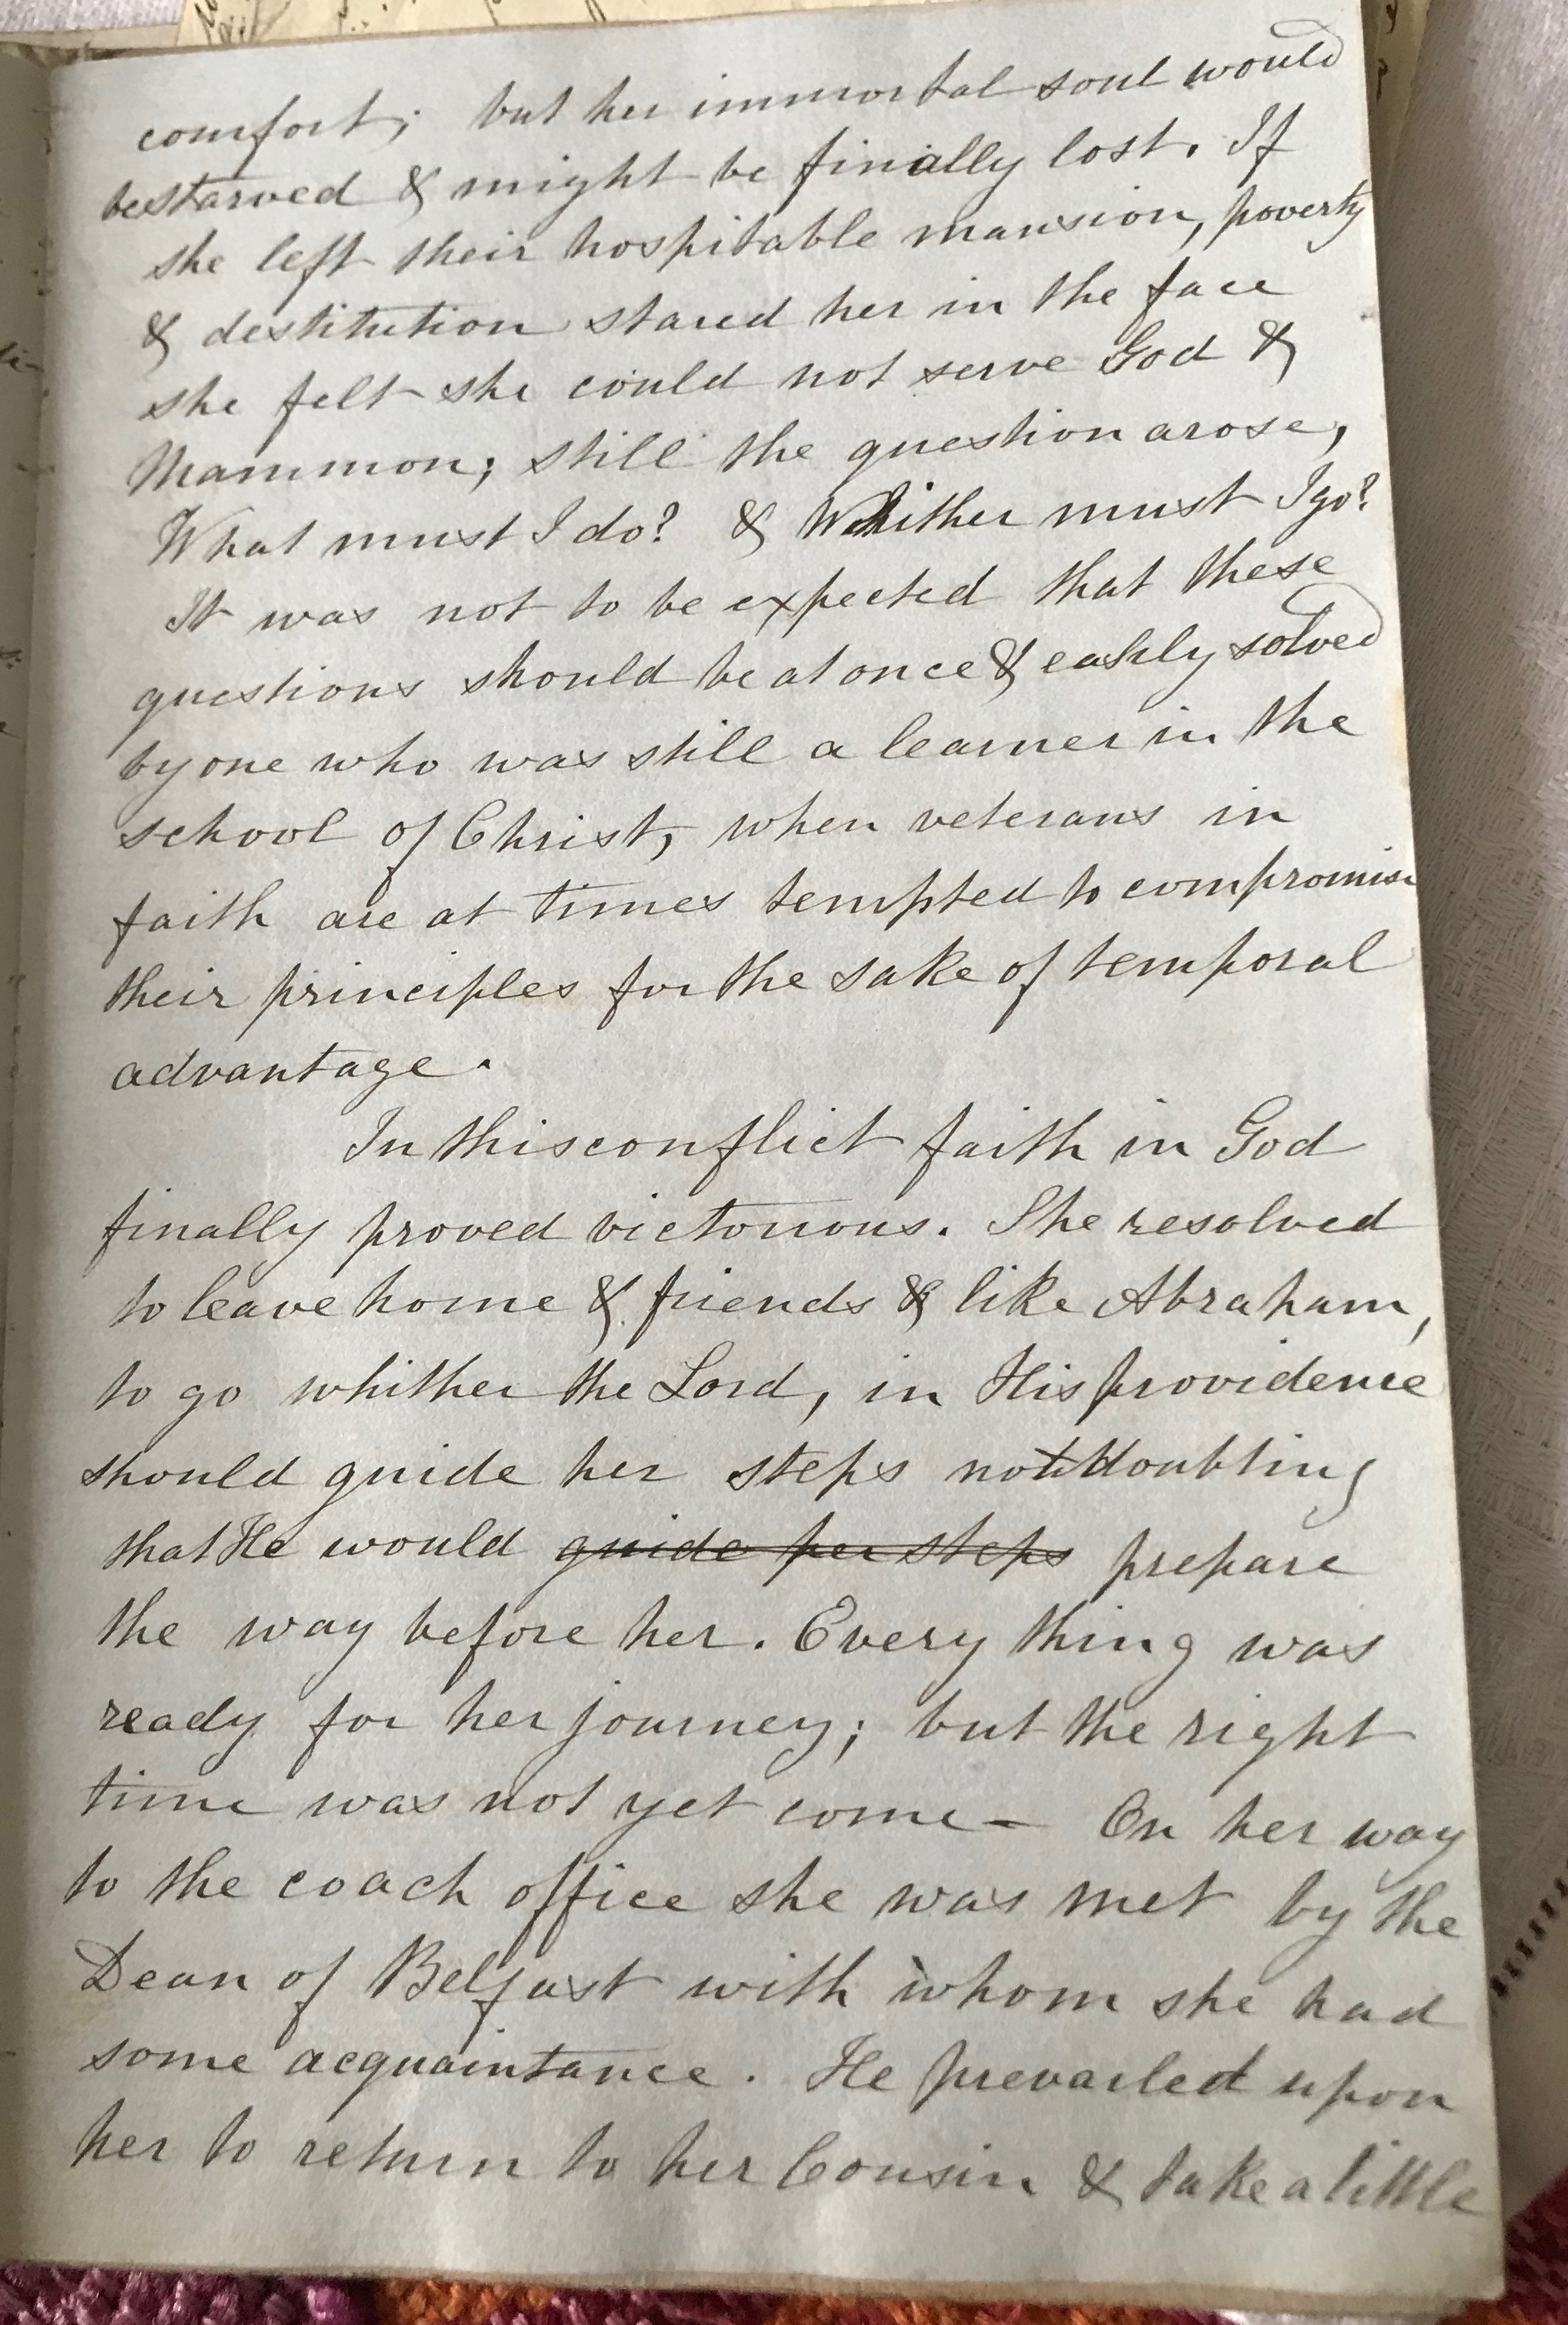 comfort; but her immortal soul would
be starved & might be finally lost. If
she left their hospitable mansion, poverty
& destitution stared her in the face
she felt she could not serve God &
Mammon; still the question arose,
What must I do? & Whither must I go?
It was not to be expected that these
questions should be at once & easily solved
by one who was still a learner in the
school of Christ, when veterans in
faith are at times tempted to compromise
their principles for the sake of temporal
advantage.
In this conflict faith in God
finally proved victorious. She resolved
to leave home & friends & like Abraham,
to go whither the Lord, in His providence
should guide her steps not doubting
that He would guide her steps prepare
the way before her. Every thing was
ready for her journey; but the right
time was not yet come - On her way
to the coach office she was met by the
Dean of Belfast with whom she had
some acquaintance. He prevailed upon
her to return to her Cousin & take a little